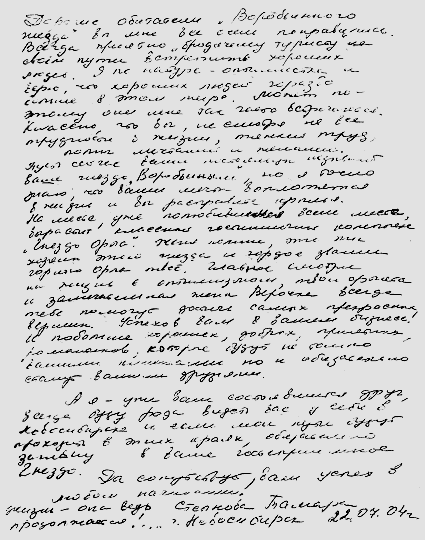 Дорогие обитатели "Воробьиного
гнезда" вы мне все очень понравились.
Всегда приятно бродячему туристу на
своём пути встретить хороших
людей. Я по натуре - оптимистка и
верю, что хороших людей гораздо
больше в этом мире. Может по-
этому они мне так часто встречаются.
Классно, что вы, не смотря на все
трудности в жизни, тяжкий труд,
полны мечтаний и
Пусть сейчас ваши называют
ваше гнездо "Воробьиным" но я точно
знаю, что ваши мечты воплотятся
в жизнь и вы расправите крылья.
На месте, уже полюбившемся всем месте,
вырастет классная гостиничный комплекс
"Гнездо Орла" Женя помни, что ты
хозяин этого гнезда и гордое звание
горного орла твоё. Главное смотри
на жизнь с оптимизмом, твои орлята
и замечательная жена Верочка всегда
тебе помогут достичь самых прекрасных
вершин. Успехов вам в вашем бизнесе!
И побольше хороших, добрых, приятных
которые будут не только
вашими но и обязательно
станут вашими друзьями.
А я - уже ваш состоявшийся друг,
всегда буду рада видеть вас у себя в
Новосибирске и если мои пути будут
проходить в этих краях, обязательно
загляну в ваше гостеприимное
Гнездо. Да сопутствует вам успех в
любом начинании.
Жизнь - она ведь Степнова Тамара
продолжается!... г. Новосибирск 22.07.04г